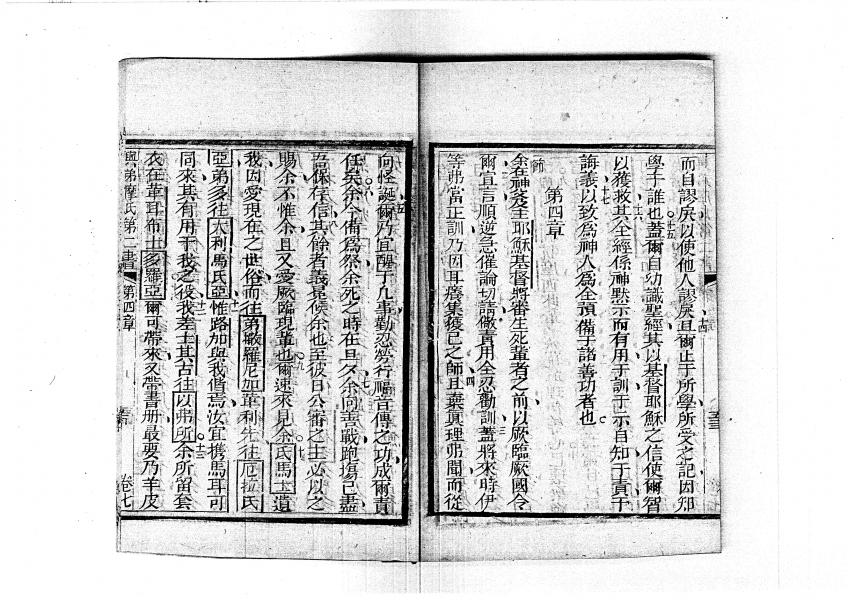 而自謬戾以使他人謬戾且爾止于所學所受之記因知
學于誰也蓋爾自幼識聖經其以基督耶穌之信使爾智
以獲救其全經係神黙示而有用于訓于示自知于責于
誨義以致為神人為全預備于諸善功者也
第四章
余在神及主耶穌基督將審生死輩者之前以厥臨厥國令
爾宣言順逆急催論切請儆責用全忍勸訓蓋將來時伊
等弗當正訓乃因耳癢集獲己之師且棄真理弗聞而從
向怪誕爾乃宜醒于凡事勤忍勞行福音傳之功成爾責
任矣余今備為祭余死之時在旦夕余向善戰跑場已盡
吾保存信其餘者義冕候余也至彼日公審之主必以之
賜余不惟余且又愛厥臨現輩也爾速來見余氐馬士遺
我因愛現在之世俗而往弟撒羅尼加革利先往厄拉氐
亞弟多往大利馬氐亞惟路加與我偕焉汝宜携馬耳可
同來其有用于我之役我差士其古往以弗所余所留套
衣在革耳布士多羅亞爾可帶來又帶書册最要乃羊皮
與弟摩氐第二書
第四章
卷七